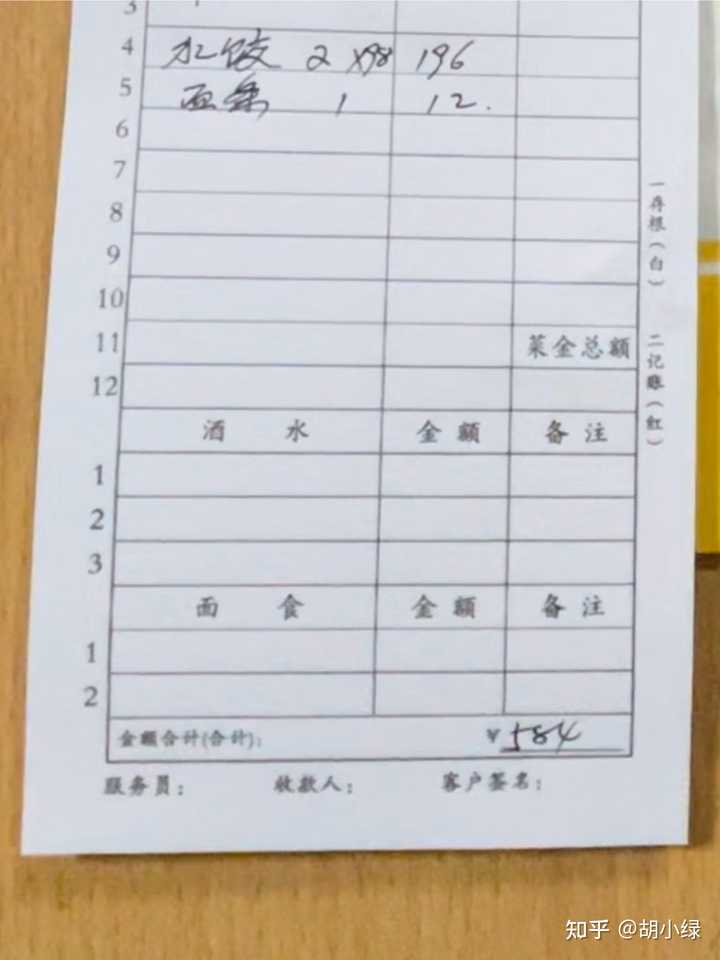 3
4 水饺 2 x98 196
5 面条 1 12.
6
7
8
9
10
11 菜金总额
12
酒 水 金 额 备 注
1
2
3
面 食 金 额 备 注
1
2
金额合计(合计): ¥584
服务员: 收款人: 客户签名:
一存根(白) 二记账(红)
知乎 @胡小绿